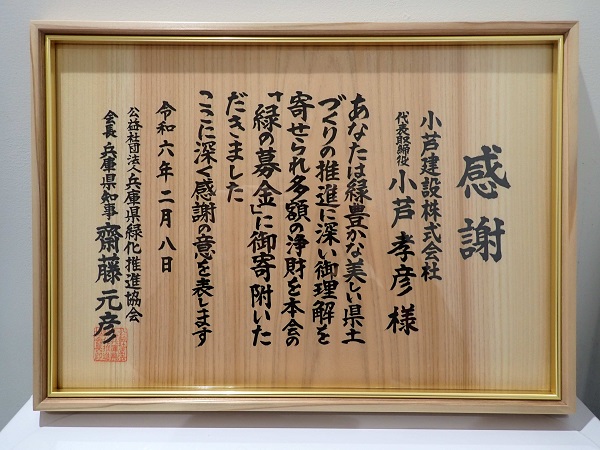 感謝
小芦建設株式会社
代表取締役 小芦孝彦様
あなたは緑豊かな美しい県土
づくりの推進に深い御理解を
寄せられ多額の浄財を本会の
「緑の募金」に御寄附いた
だきました
ここに深く感謝の意を表します
令和六年二月八日
公益社団法人兵庫県緑化推進協会
会長 兵庫県知事 齋藤元彦